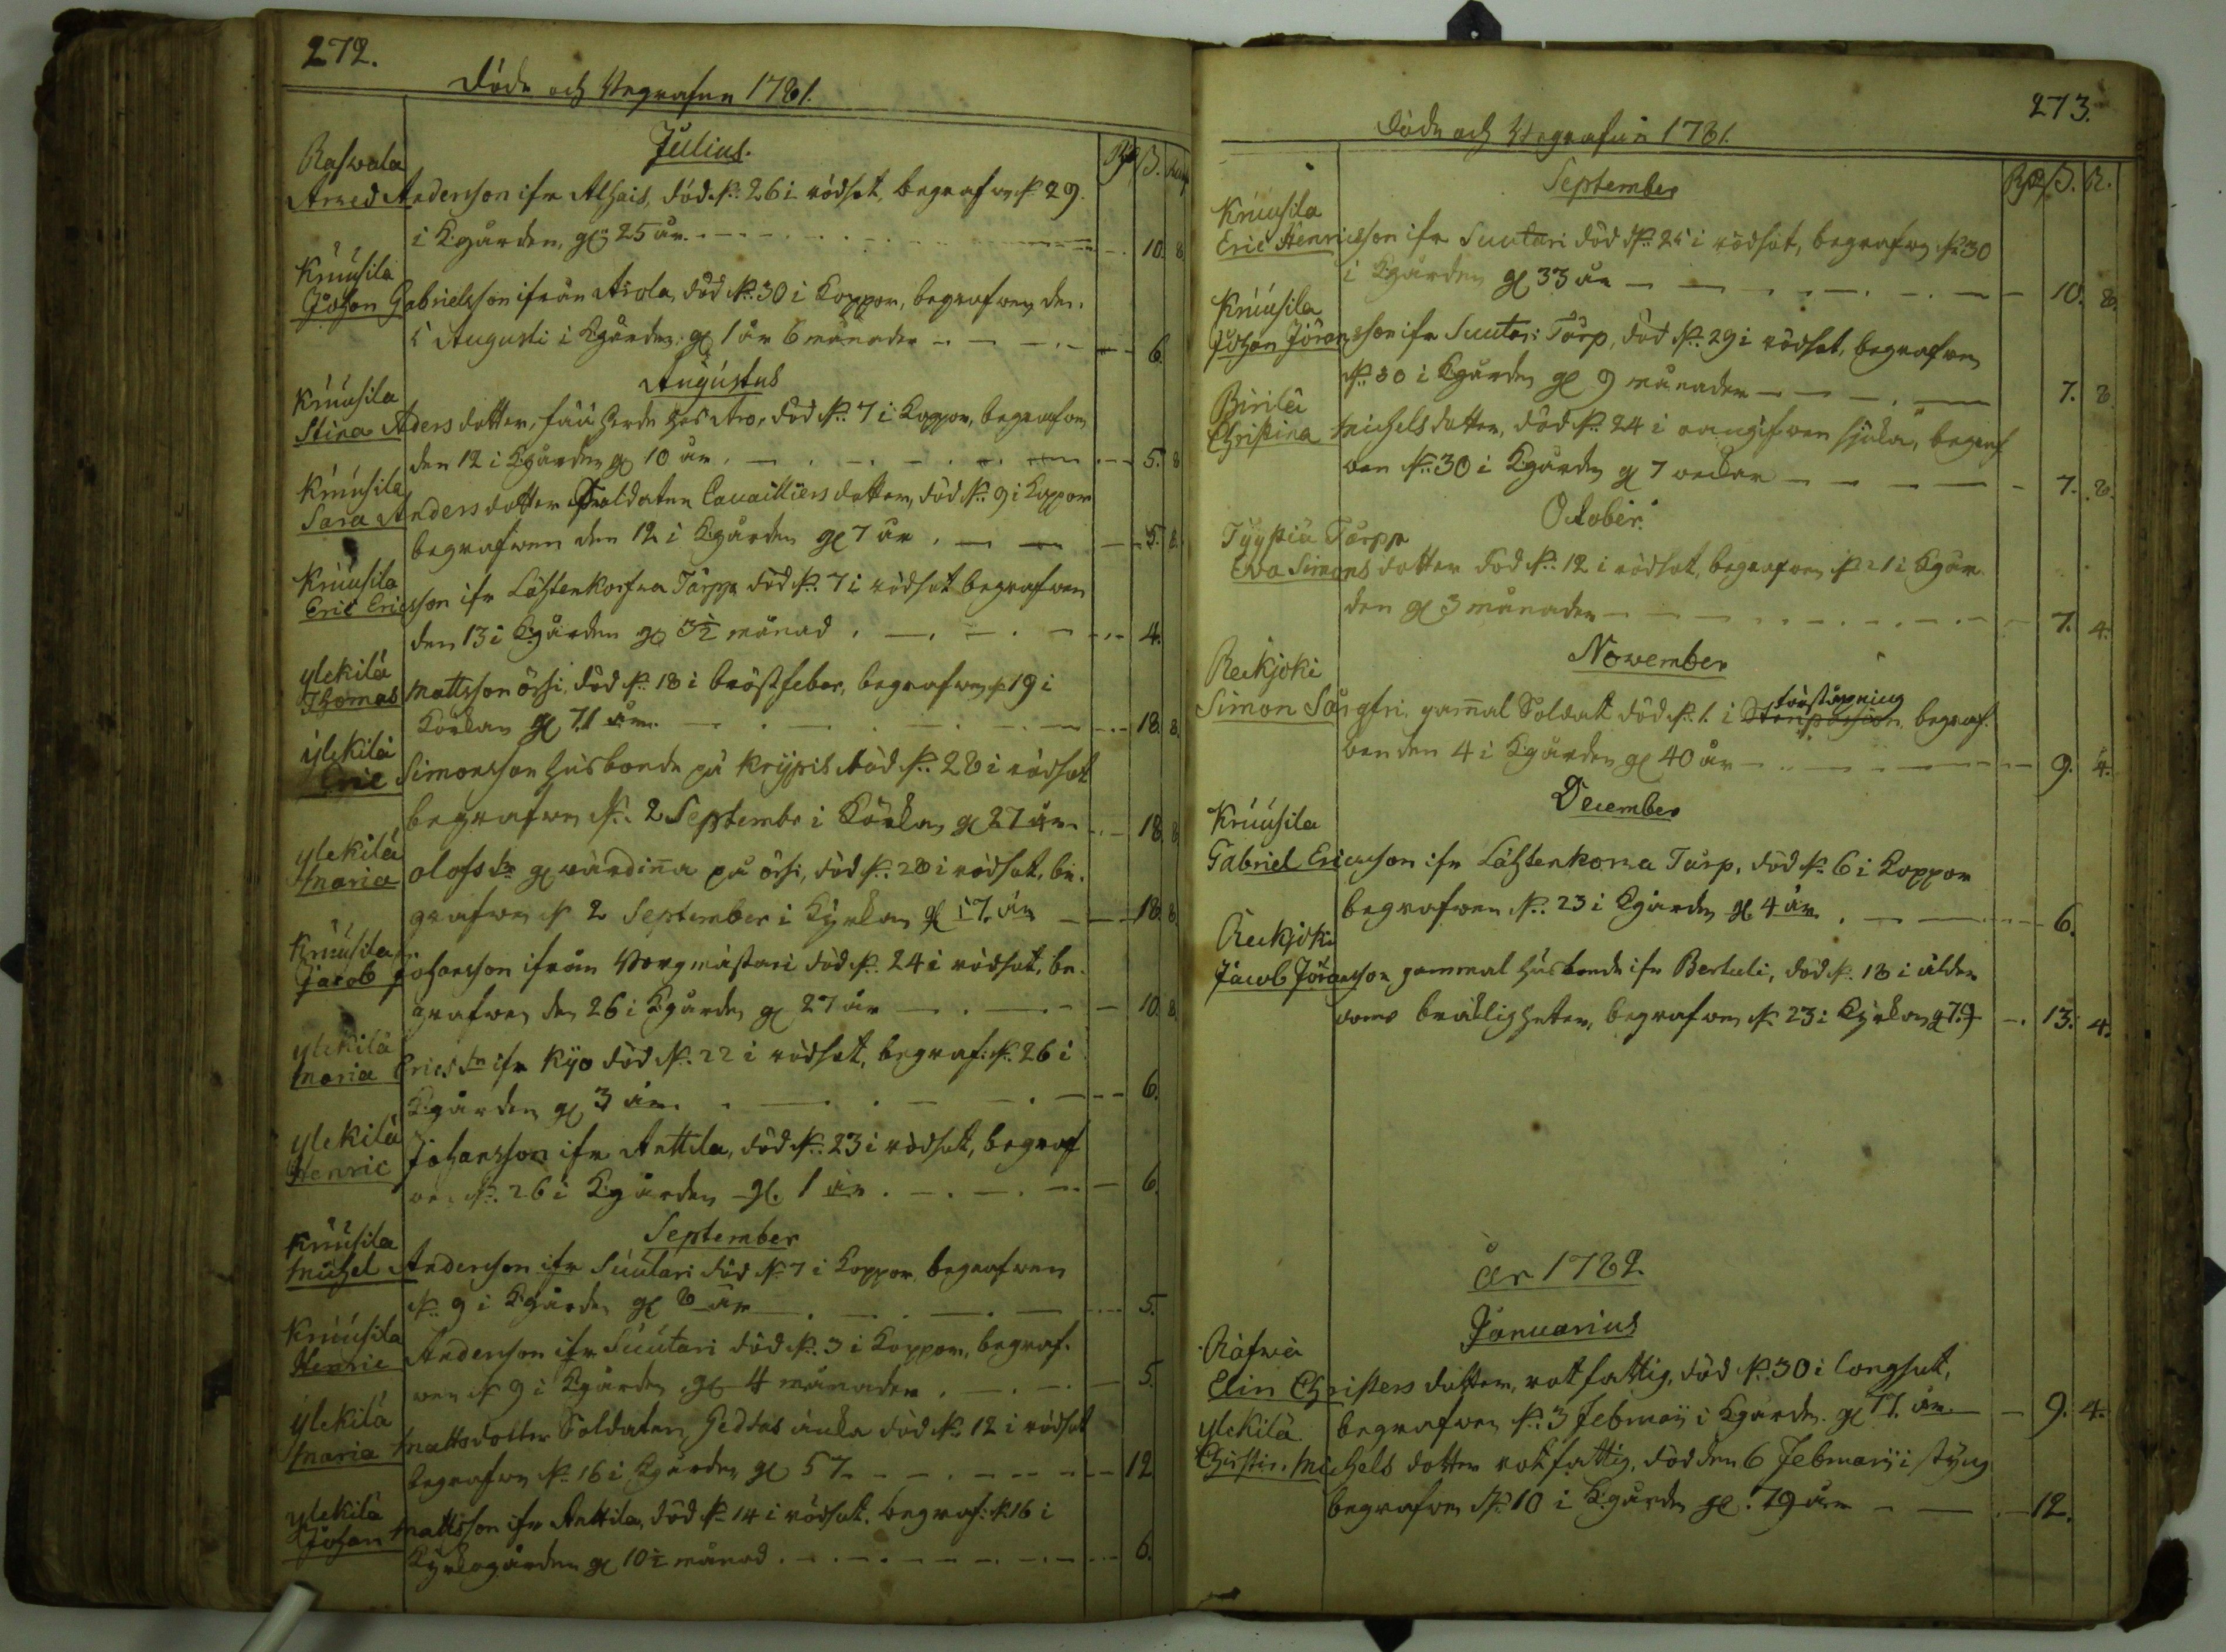 272.
Döde och Begrafne 1781.
Julius.
Rp. S. R.
Raswala
Arwed Anderson ifr Alhais, död d. 26 i rödsot, begrafwen d. 29.
i K:gården, gl. 25 år. 10. 8
Kruusila
Johan Gabrielsson ifrån Arola, död d. 30 i koppor, begrafwen den
5 Augusti i K:gården, gl 1 år 6 månader 6.
Augustus
Kruusila
Stina Aders dotter, död d. 7 i koppor, begrafwen
den 12 i K:gården gl 10 år. 5. 8
Kruusila
Sara Anders dotter Soldaten Cavailliers dotter, död d. 9 i koppor
begrafwen den 12 i K:gården gl 7 år. 5. 8.
Kruusila
Eric Ericsson ifr Torpp död d. 7 i rödsot begrafwen
den 13 i K:gården gl 3½ månad. 4.
ylekilä
Thomas Mattsson örsi, död d. 18 i bröstfeber, begrafwen d. 19 i
Körkan gl 71 år. 18. 8.
ylekilä
Eric Simonsson husbonde på Krypis död d. 28 i rödsot
begrafwen d. 2 Septembr i Körkan gl 27 år 18 8
ylekilä
Maria olofs dr gl wärdinna på örsi, död d. 28 i rödsot, be-
grafwen d 2 September i Kyrkan gl 57. år 18 8
Kruusila
Jacob Johansson ifrån Borgmästari död d. 24 i rödsot, be-
grafwen den 26 i K:gården gl 27 år 10. 8
ylekilä
Maria Erics dr ifr Kyö död d. 22 i rödsot, begraf: d. 26 i
K:gården gl 3 år. 6.
ylekilä
Henric Johansson ifr Anttila, död d. 23 i rödsot, begraf
wen d. 26 i K:gården gl. 1 år. 6.
September
Kruusila
Michel Anderson ifr Suutari död d. 7 i koppor, begrafwen
d. 9 i K:gården gl 8 år 5.
Kruusila
Henric Anderson ifr Suutari död d. 3 i koppor, begraf-
wen d 9 i K:gården, gl 4 månader. 5.
ylekilä
Maria Mattsdotter Soldaten Geddas änka död d. 12 i rödsot
begrafwen d. 16 i K:gården gl 57 12
ylekilä
Johan Mattsson ifr Anttila, död d. 14 i rödsot, begraf: d. 16 i
Kyrkogården gl 10½ månad. 6.
273.
Döde och Begrafne 1781.
September
Rp S. R.
Kruusila
Eric Henricsson ifr Suutari död d. 25 i rödsot, begrafwen d. 30
i K:gården gl 33 år 10. 8.
Kruusila
Johan Jöransson ifr Suutari Torp, död d. 29 i rödsot, begrafwen
d. 30 i K:gården gl 9 månader 7. 8
Birilä
Christina Michels dotter, död d. 24 i oangifwen sjuka, begraf
wen d. 30 i K:gården gl 7 weckor 7. 8.
October.
Tyypiä Torpp
Eva Simons dotter död d. 12 i rödsot, begrafwen d 21 i K:går
den gl 3 månader 7. 4.
November
Reckjoki
Simon gamal Soldat död d. 1. i förstoppning begraf-
wen den 4 i K:gården gl 40 år 9. 4.
December
Kruusila
Gabriel Ericsson ifr Torp, död d. 6 i koppor
begrafwen d. 23 i K:gården gl. 4 år. 6.
Reckjoki
Jacob Jöransson gammal husbonde ifr Bertuli, död d. 18 i ålder
doms bräckligheter, begrafwen d 23 i Kyrkan gl 79 13. 4.
år 1782
Januarius
Räfwä
Elin Christers dotter, rotfattig, död d. 30 i lungsot,
begrafwen d. 3 Februarii i K:gården. gl 77 år. 9. 4.
ylekilä
Christin. Michels dotter rotfattig, död den 6 Februarii i styng
begrafwen d. 10 i K:gården gl. 79 år 12.